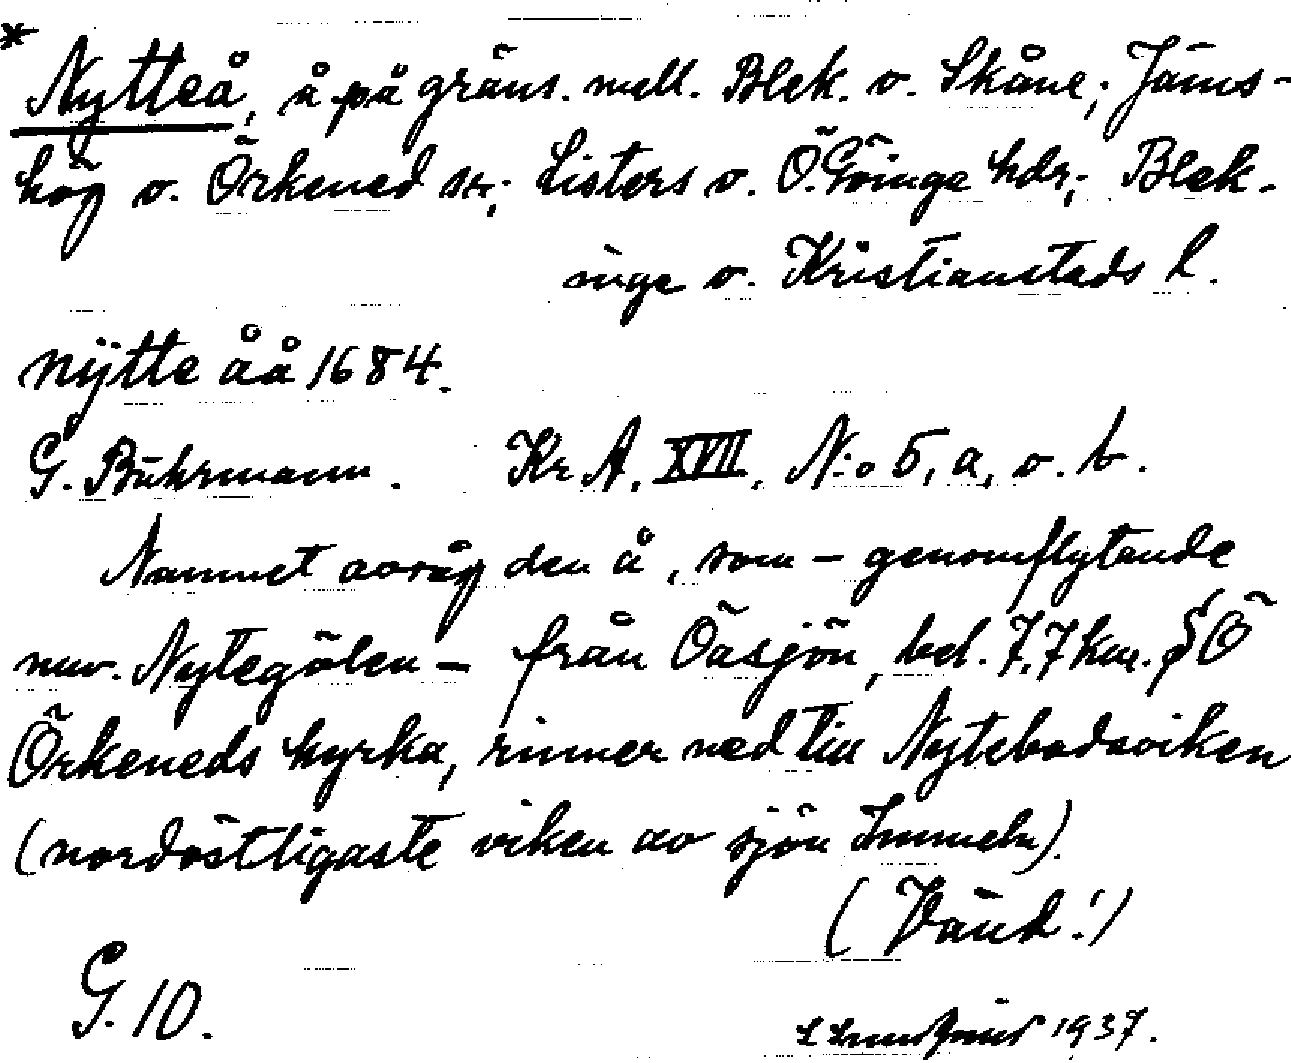 * Nytteå, å på gräns. mell. Blek. o. Skåne; Jäms-
hög o. Örkened sn; Listers o. Ö. Göinge hdr; Blek-
inge o. Kristianstads l.
nÿtte åå 1684.
G. Buhrmann. Kr A. XVII, N:o 5, a, o. b.
Namnet avsåg den å, som – genomflytande
nuv. Nytegölen – från Öasjön, bel. 7,7 km. SÖ
Örkeneds kyrka, rinner ned till Nytebodaviken
(nordöstligaste viken av sjön Immeln).
(Vänd!)
G. 10.
1937.